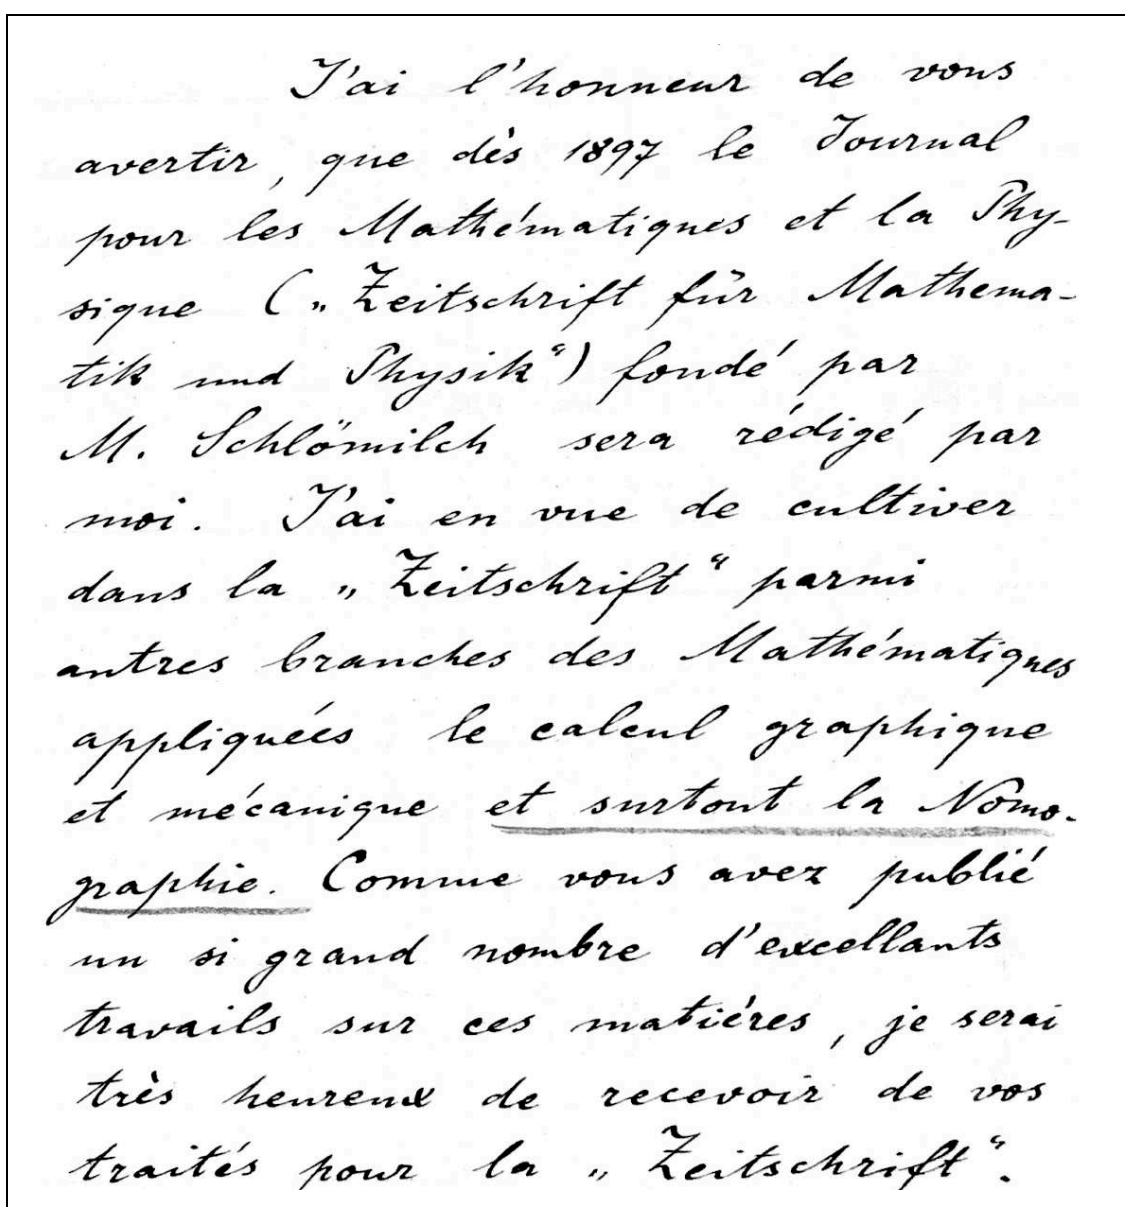 J'ai l'honneur de vous
avertir, que dès 1897 le Journal
pour les Mathématiques et la Phy-
sique („Zeitschrift für Mathema-
tik und Physik“) fondé par
M. Schlömilch sera rédigé par
moi. J'ai en vue de cultiver
dans la „Zeitschrift“ parmi
autres branches des Mathématiques
appliquées le calcul graphique
et mécanique et surtout la Nomo-
graphie. Comme vous avez publié
un si grand nombre d'excellants
travails sur ces matiéres, je serai
très heureux de recevoir de vos
traités pour la „Zeitschrift“.